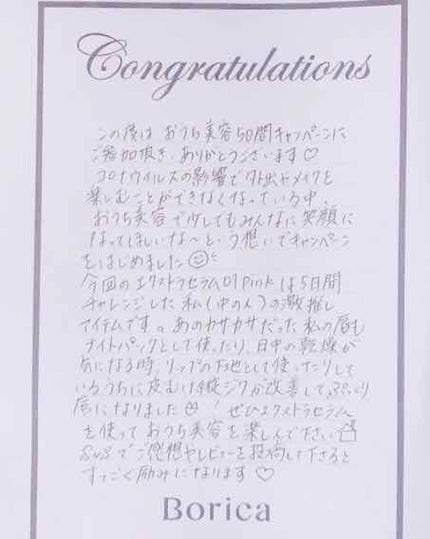 Congratulations
この度は おうち美容5日間キャンペーンに
ご参加頂き、ありがとうございます♡
コロナウイルスの影響で外出やメイクを
楽しむことができなくなっている中、
おうち美容で少しでもみんなに笑顔に
なってほしいな〜という想いでキャンペーン
をはじめました☺
今回のエクストラセラム01 Pinkは5日間
チャレンジした私(中の人)の激推し
アイテムです。あのカサカサだった私の唇も
ナイトパックとして使ったり、日中の乾燥が
気になる時、リップの下地として使ったりして
いるうちに皮むけ&縦ジワが改善してぷっくり
唇になりました！ぜひエクストラセラム
を使っておうち美容を楽しんで下さい
SNSでご感想やレビューを投稿して下さると
すっごく励みになります♡
Borica